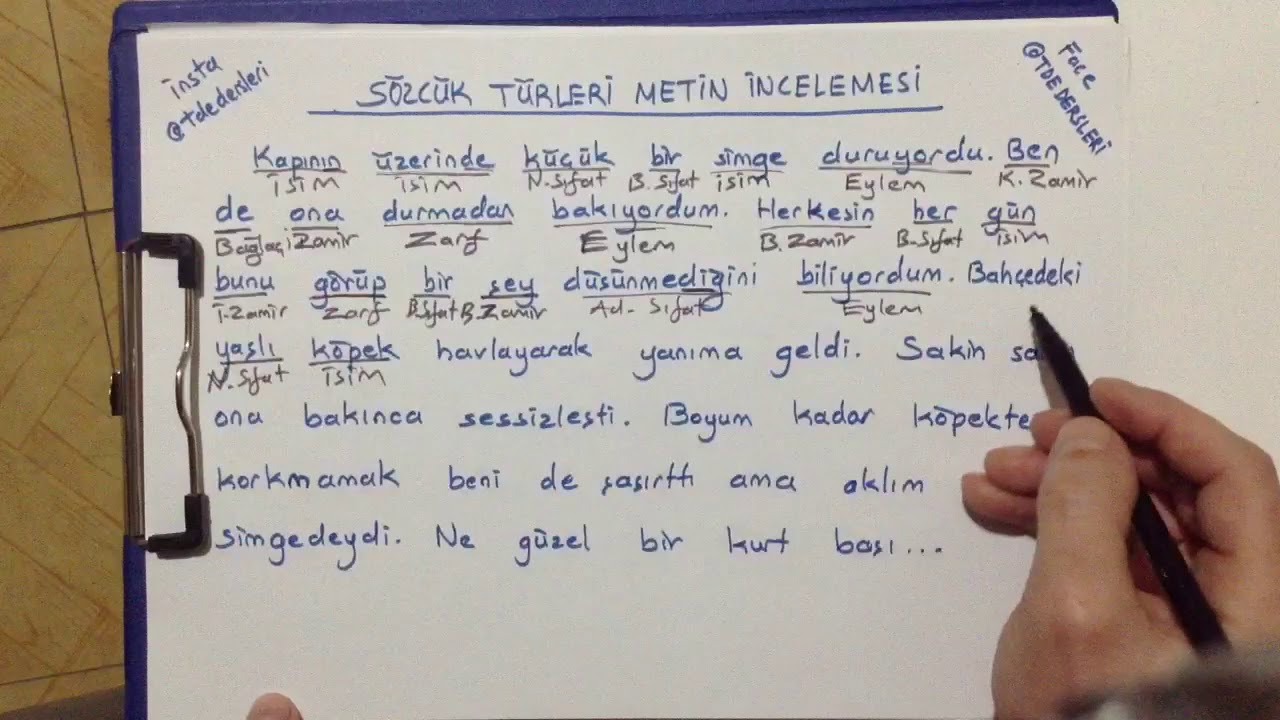 insta
@tdedersleri
Face
@TDEDERSLERİ
SÖZCÜK TÜRLERİ METİN İNCELEMESİ
Kapının üzerinde küçük bir simge duruyordu. Ben
İSİM İSİM N.Sıfat B.Sıfat İSİM Eylem K.Zamir
de ona durmadan bakıyordum. Herkesin her gün
Bağlaç İ.Zamir Zarf Eylem B.Zamir B.Sıfat isim
bunu görüp bir şey düşünmediğini biliyordum. Bahçedeki
İ.Zamir Zarf B.Sıfat B.Zamir Ad- Sıfat Eylem
yaşlı köpek havlayarak yanıma geldi. Sakin
N.Sıfat İSİM
ona bakınca sessizleşti. Boyum kadar köpekte
korkmamak beni de şaşırttı ama aklım
simgedeydi. Ne güzel bir kurt başı...